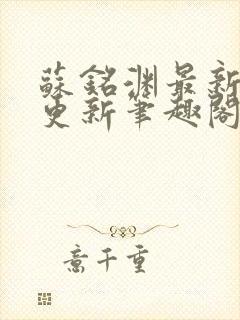 蘇銘淵最新
更新筆趣閣
意千重